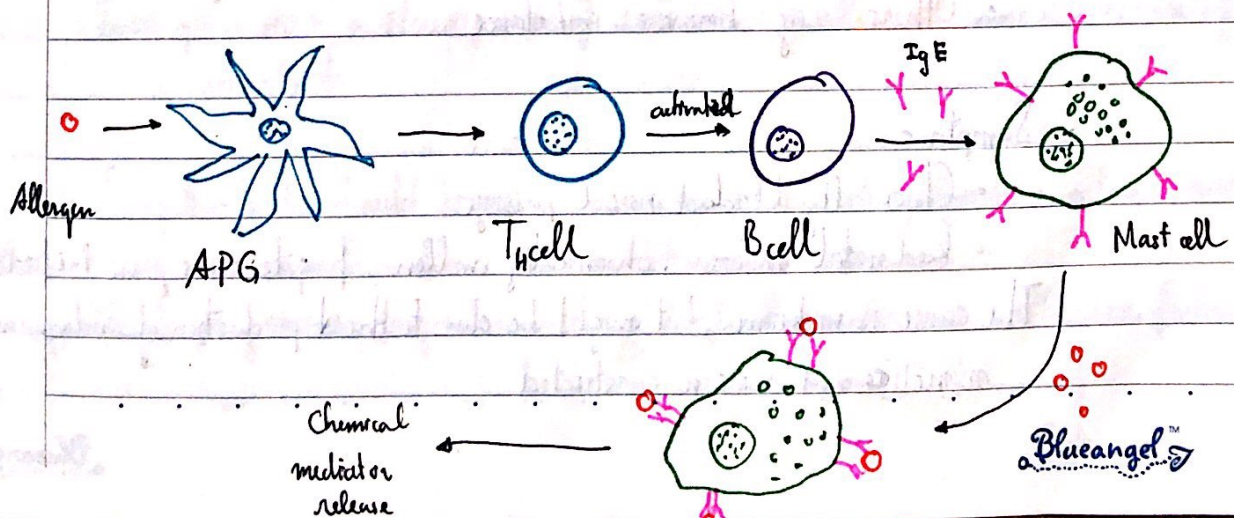 Allergen
APG
T_H cell
activated
B cell
IgE
Mast cell
Chemical
mediator
release
Blueangel™